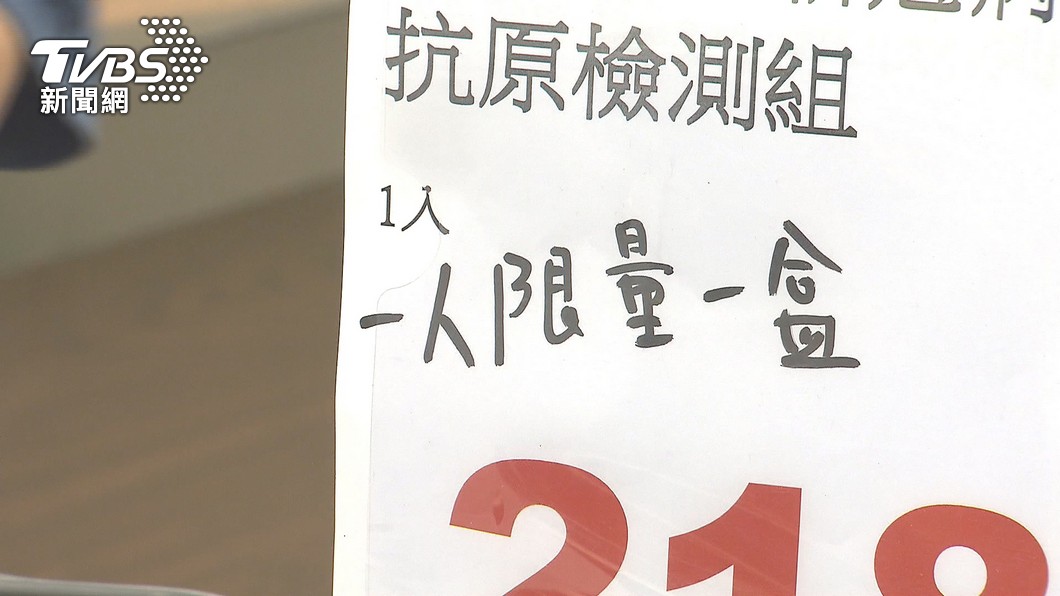 TVBS
新聞網
抗原檢測組
1入
一人限量一盒